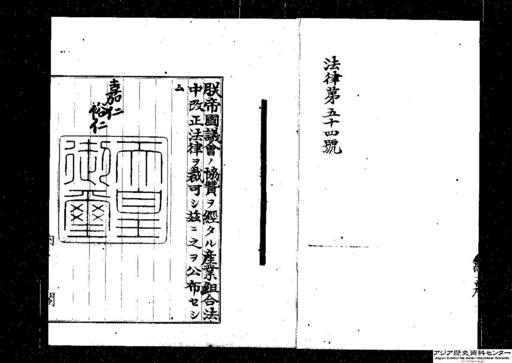 法律第五十四號
朕帝國議會ノ協賛ヲ經タル産業組合法
中改正法律ヲ裁可シ茲ニ之ヲ公布セシ
ム
嘉仁
裕仁
天皇
御璽
内閣
アジア歴史資料センター
Japan Center for Asian Historical Records